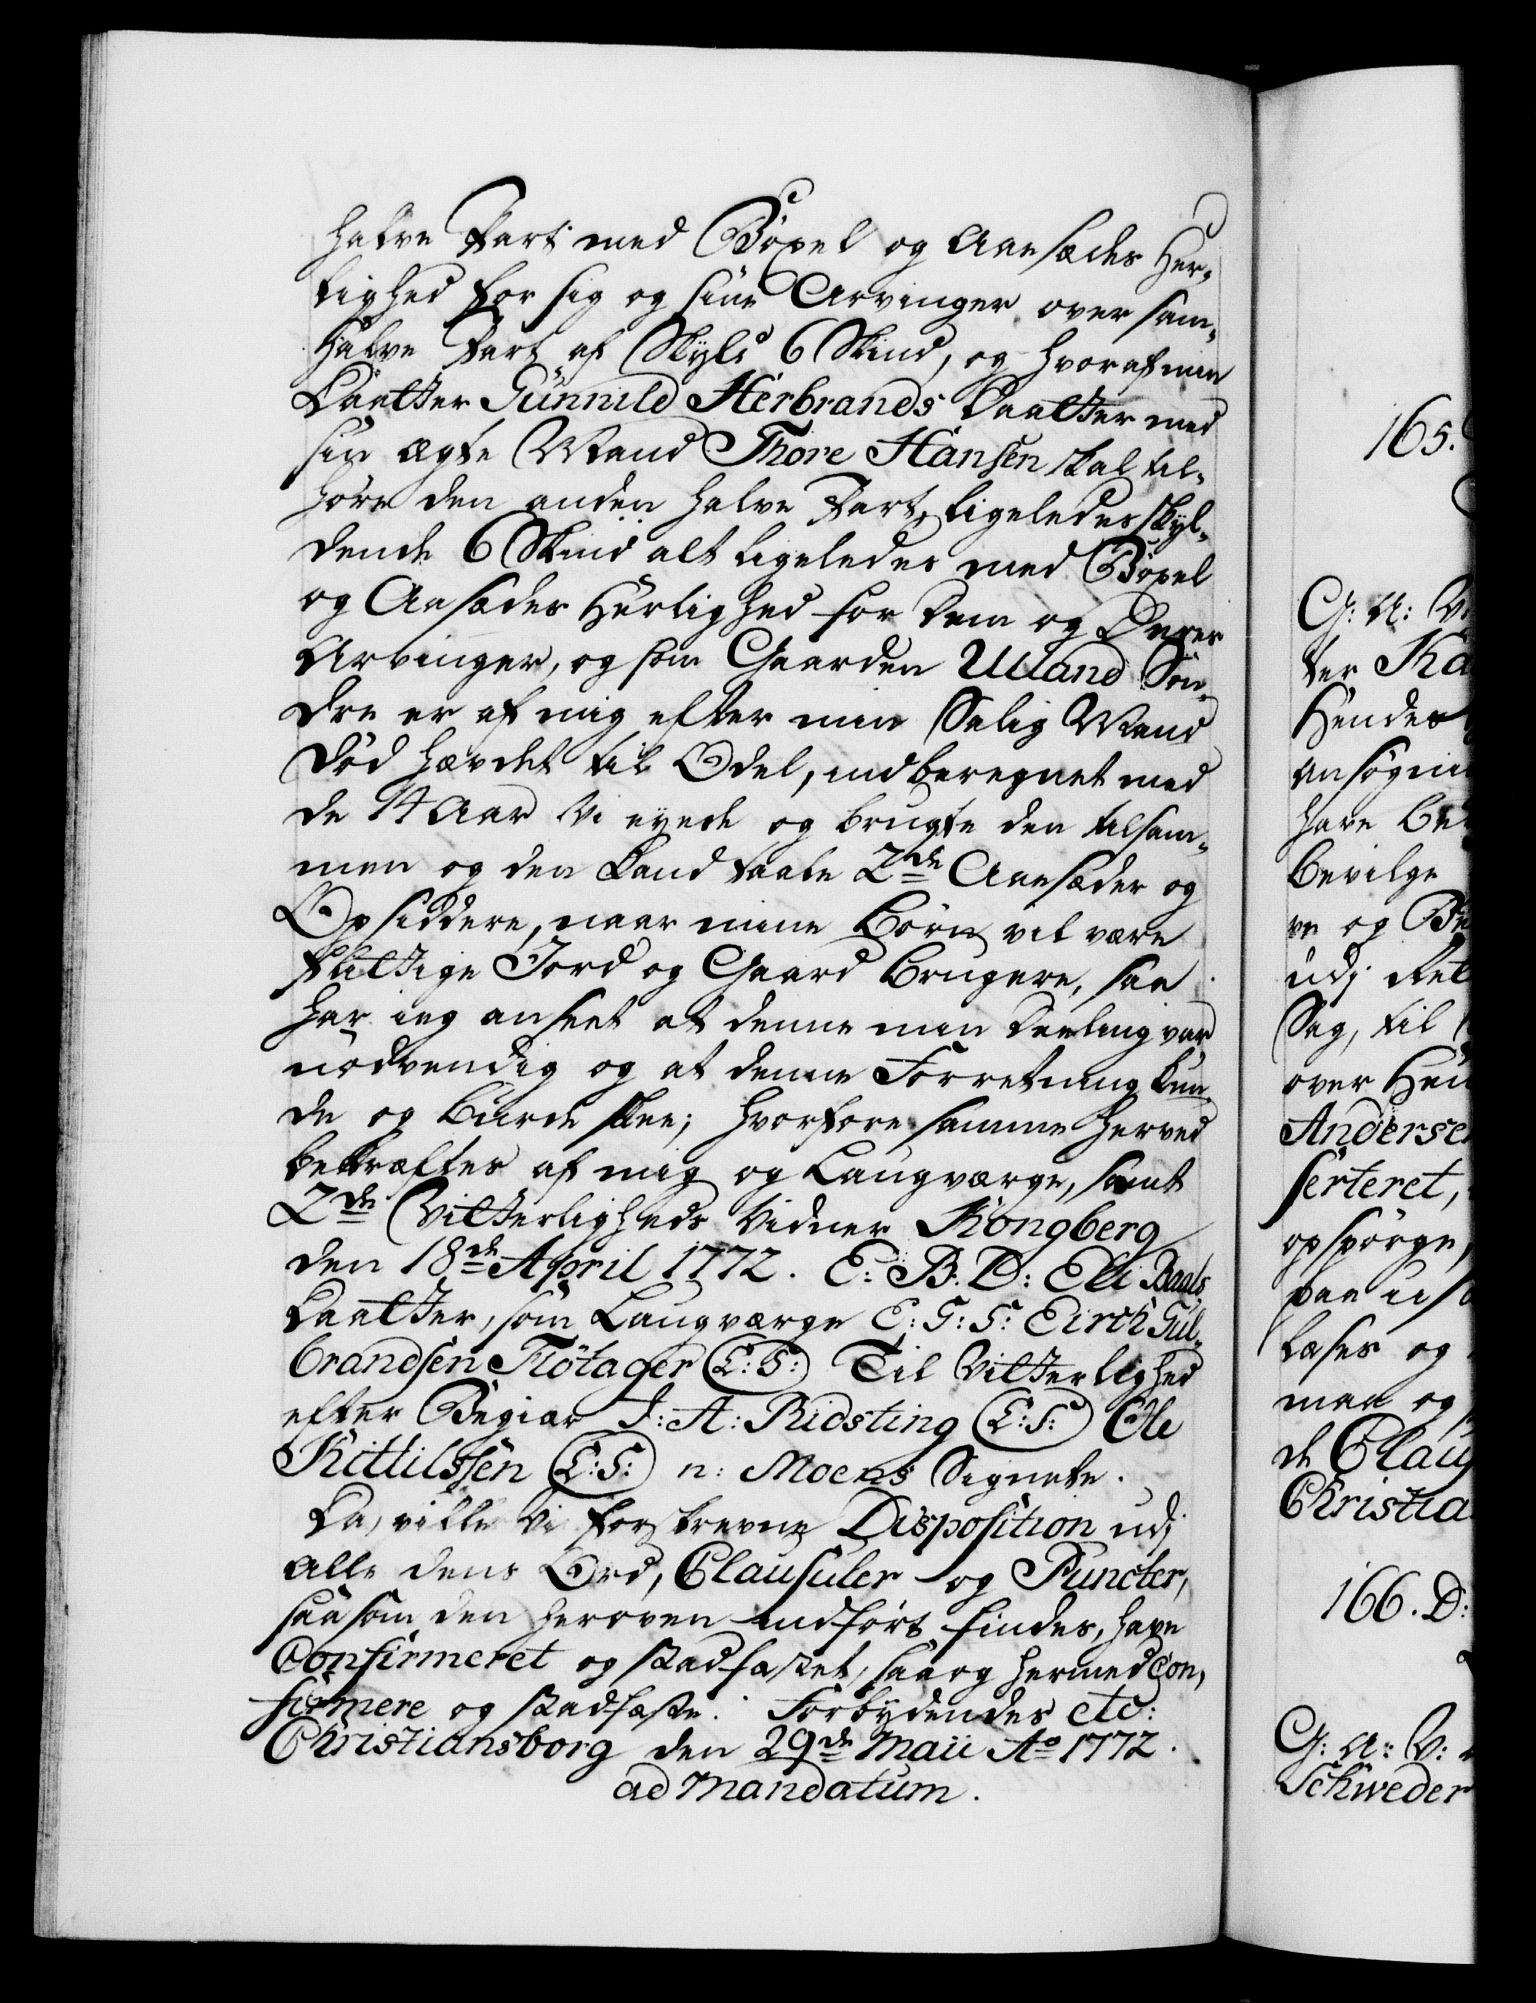 halve Part med Bøxel og Aasædes Her-
lighed for sig og sine Arvinger over sam-
halve Part af Skyld 6 Skind, og hvoraf min
Daatter Gunnild Herbrands Daatter med
sin ægte Mand Thore Hansen skal til-
høre den anden halve Part, ligeledes skyl-
dende 6 Skind alt ligeledes med Bøxel
og Aasædes Herlighed for dem og Deres
Arvinger, og som Gaarden Uland Søn-
dre er af mig efter min Salig Mand
Død hævdet til Odel, indberegnet med
de 14 Aar Vi eyede og brugte den tilsam-
men og den kand taale 2de Aasæder og
Opsiddere, naar mine Børn vil være
flittige Jord og Gaard Brugere, saa
har ieg anseet at denne min Deeling var
nødvendig og at denne Forretning kun-
de og burde skee; hvorfore samme herved
bekræftes af mig og Laugværge, samt
2de Vitterligheds Vidner Kongberg
den 18de April 1772. E: B: D: Eli Baals
Daatter, som Laugværge E: G: S: Eirch Gul-
brandsen Flötager (L:S:) Til Vitterlighed
efter Begiær J: A: Ridsting (L:S:) Ole
Kittilssen (L:S:) n: Moens Signete.
Da, ville Vi forskrevne Disposition udj
alle dens Ord, Clausuler og Puncter,
saasom den heroven indført findes, have
Confirmeret og stadfæstet, saa og hermed Con-
firmere og stadfæste. Forbydendes etc:
Christiansborg den 29de Maii Ao 1772.
ad Mandatum.
165.
G: A: V:
ter Ka
Hendes
ansøgni
have be
bevilge
ve og Be
udj Ret
Sag, til
over Hen
Anderse
serteret,
opspørge,
læses og
maa og
de Claus
Christia
166. D:
G: A: V:
Schweder